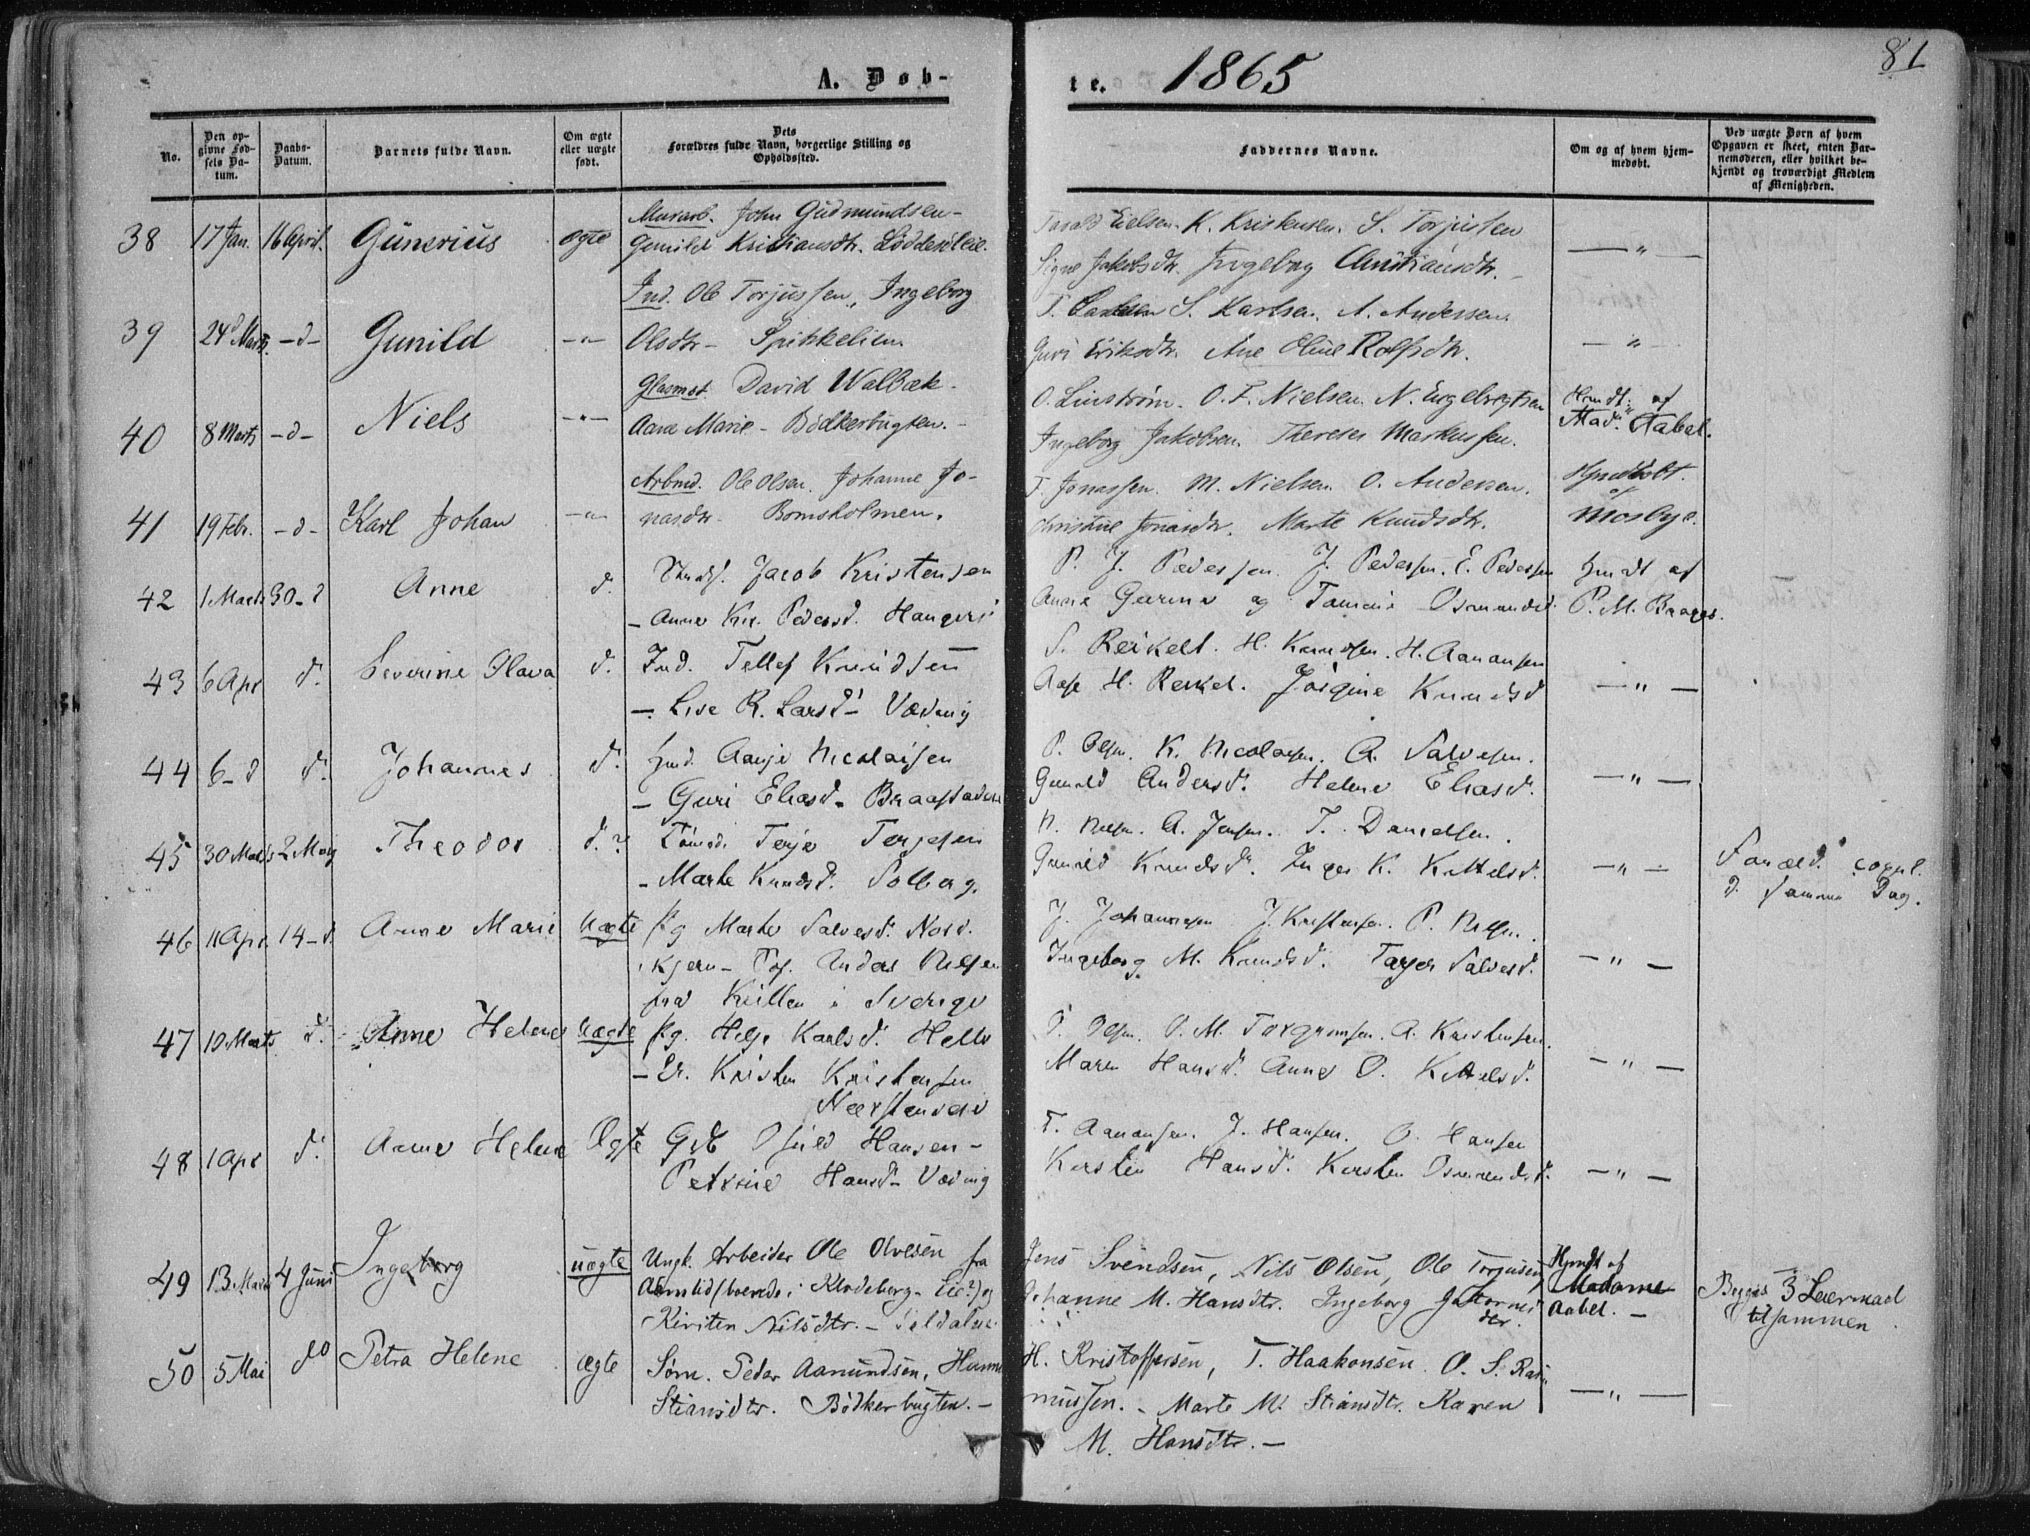 A. Døb-
te. 1865
81
No.
Den op-
givne Fød-
sels Da-
tum.
Daabs-
Datum.
Barnets fulde Navn.
Om ægte
eller uægte
født.
Dets
Forældres fulde Navn, borgerlige Stilling og
Opholdssted.
Faddernes Navne.
Om og af hvem hjem-
medøbt.
Ved uægte Børn af hvem
Opgaven er skeet, enten Bar-
nemoderen, eller hvilket be-
kjendt og troværdigt Medlem
af Menigheden.
38 17 Jan. 16 April. Gunerius ægte Murarb. John Gudmundsen-
Gunild Kristiansdtr.
Eielsen. K. Kristensen. S. Torjussen — „ —
Signe Jakobsdtr. Ingeborg Christiansdtr. -
39 24d Marts. -d- Gunild -„- Ind. Ole Torjussen, Ingeborg
Olsdtr - Spikkelien.
S. Karlsen. A. Andersen. — „ —
Guri Eriksdtr. Ane Oline Rolfsdtr.
40 8 Marts -d- Niels -„- Glasmst David Walbæk -
Aane Marie - Bødkerbugten. -
O. Linstrøm. O. F. Nielsen. N. Engebregtsen Hmdt. af
Ingeborg Jakobsen. Therese Markussen. Mad. Aabel.
41 19 Febr. -d- Karl Johan -„- Arbmd. Ole Olsen. Johanne Jo-
nasdtr - Bomsholmen.
T. Jonassen. M. Nielsen. O. Andersen. Hjmdbt.
Christine Jonasdtr. Marte Knudsdtr. af Mosbye.
42 1 Marts 30-d Anne d. Jacob Kristensen
- Anne Kir. Pedersd.
P. J. Pedersen. J. Pedersen. E. Pedersen hmdt af
Anne og Osmundsd. P. M.
43 6 Apr d. Severine Olava d. Ind. Tellef Knudsen
- Lise R. Larsd -
S. Reikelt. H. Knudsen. H. Aanonsen — „ —
H. Jørgine Knudsd
44 6-d d. Johannes d. Ind. Nicolaisen
- Guri Eliasd - Braastad
P. Olsen. K. Nicolaisen. A. Salvesen. — „ —
Gunild Andersd. Helene Eliasd.
45 30 Marts 2 Maj Theodor d. Tømd. Terje Terjesen
- Marte Knudsd. Solberg.
N. Nilsen. A. Jensen. T. Danielsen. — „ — Foræld. copul.
Gunild Knudsd. Inger K. Kittelsd. d. samme Dag.
46 11 Apr. 14-d. Anne Marie Uægte Pg Marte Salvesd.
kjern - Anders Nilsen
fra i Sverige
J. Johannesen J. Kristensen. P. Nilsen. — „ —
Ingeborg M. Knudsd. Salvesd.
47 10 Marts d. Anne Helene Uægte Pg. Helje Karlsd. Helle
- Er. Kristen Kristensen
O. Olsen. O. M. Torgrimsen. A. Kristensen. — „ —
Maren Hansd. Anne O. Kittelsd.
48 1 Apr d. Anne Helene Ægte Hansen -
Petrine Hansd -
T. Aanonsen. J. Hansen. O. Hansen — „ —
Kirsten Hansd. Kirsten Osmundsd.
49 13 Marts 4 Juni Ingeborg uægte Ungk. Arbeider Ole Olvesen fra
Aamlid (boende i Klodeberg - Eie?) og
Kirsten Nilsdtr. -
Jens Svendsen, Nils Olsen, Ole Torjusen, Hjmdt af
Johanne M. Hansdtr. Ingeborg Madame
dtr. Aabel. -
Begges 3 Leiermaal
tilsammen.
50 5 Mai do Petra Helene ægte Søm. Peder Aamundsen,
Stiansdtr. Bødkerbugten. -
H. Kristoffersen, T. Haakonsen. O. S. Ras- — „ —
mussen. - Marte M. Stiansdtr. Karen
M. Hansdtr. -